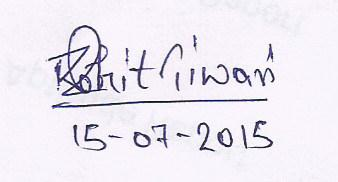 Rohit Tiwari
15-07-2015